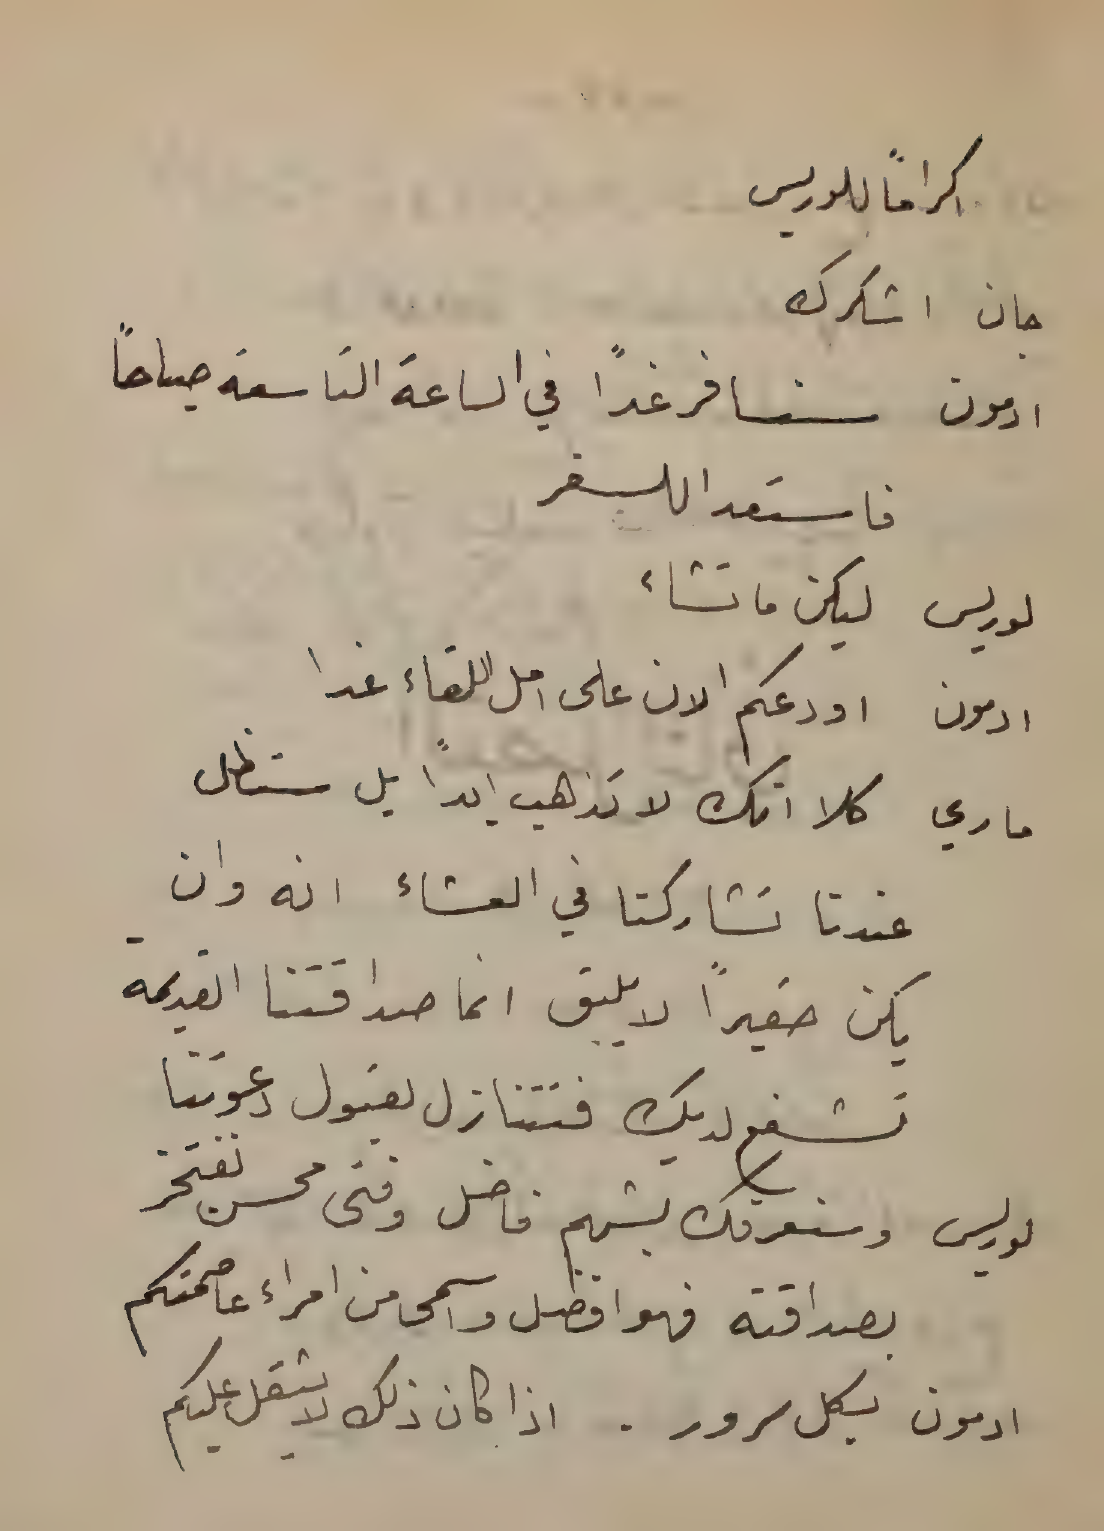 اكراماً للوريس
جان اشكرك
ادمون سنسافر غداً في الساعة التاسعة صباحاً
فاستعدا للسفر
لوريس ليكن ما تشاء
ادمون اودعكم الان على امل اللقاء غدا
ماري كلا انك لا تذهب ابداً بل ستظل
عندنا تشاركنا في العشاء انه وان
يكن حقيراً لا يليق انما صداقتنا القديمة
تشفع لديك فتتنازل لقبول دعوتنا
لوريس وسنعرفك بشهم فاضل وفتى محسن نفتخر
بصداقته فهو افضل واسمى من امراء عاصمتكم
ادمون بكل سرور . اذا كان ذلك لا يثقل عليكم